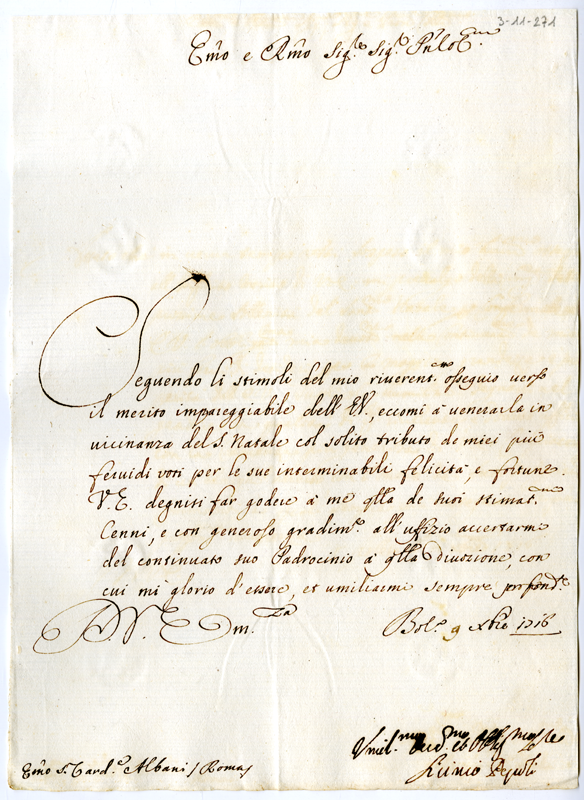 3-11-271
Emo e Rmo Sig.re Sig.re Pñlo
Seguendo li stimoli del mio riverent.mo osseguio verso
il merito impareggiabile dell' EV., eccomi à venerarla in
vicinanza del S. Natale col solito tributo de miei più
feruidi voti per le sue interminabili felicità, e fortune.
V. E. degnisi far godere à me qlla de suoi stimat.mi
Cenni, e con generoso gradim.to all' uffizio accertarmi
del continuato suo Padrocinio à qlla divozione, con
cui mi glorio d'essere, et umiliarmi sempre profond.e
D. V. Em.za
Bol.a 9 Xbre 1716
Vmil.mo
Emo S. Card.e Albani / Roma /